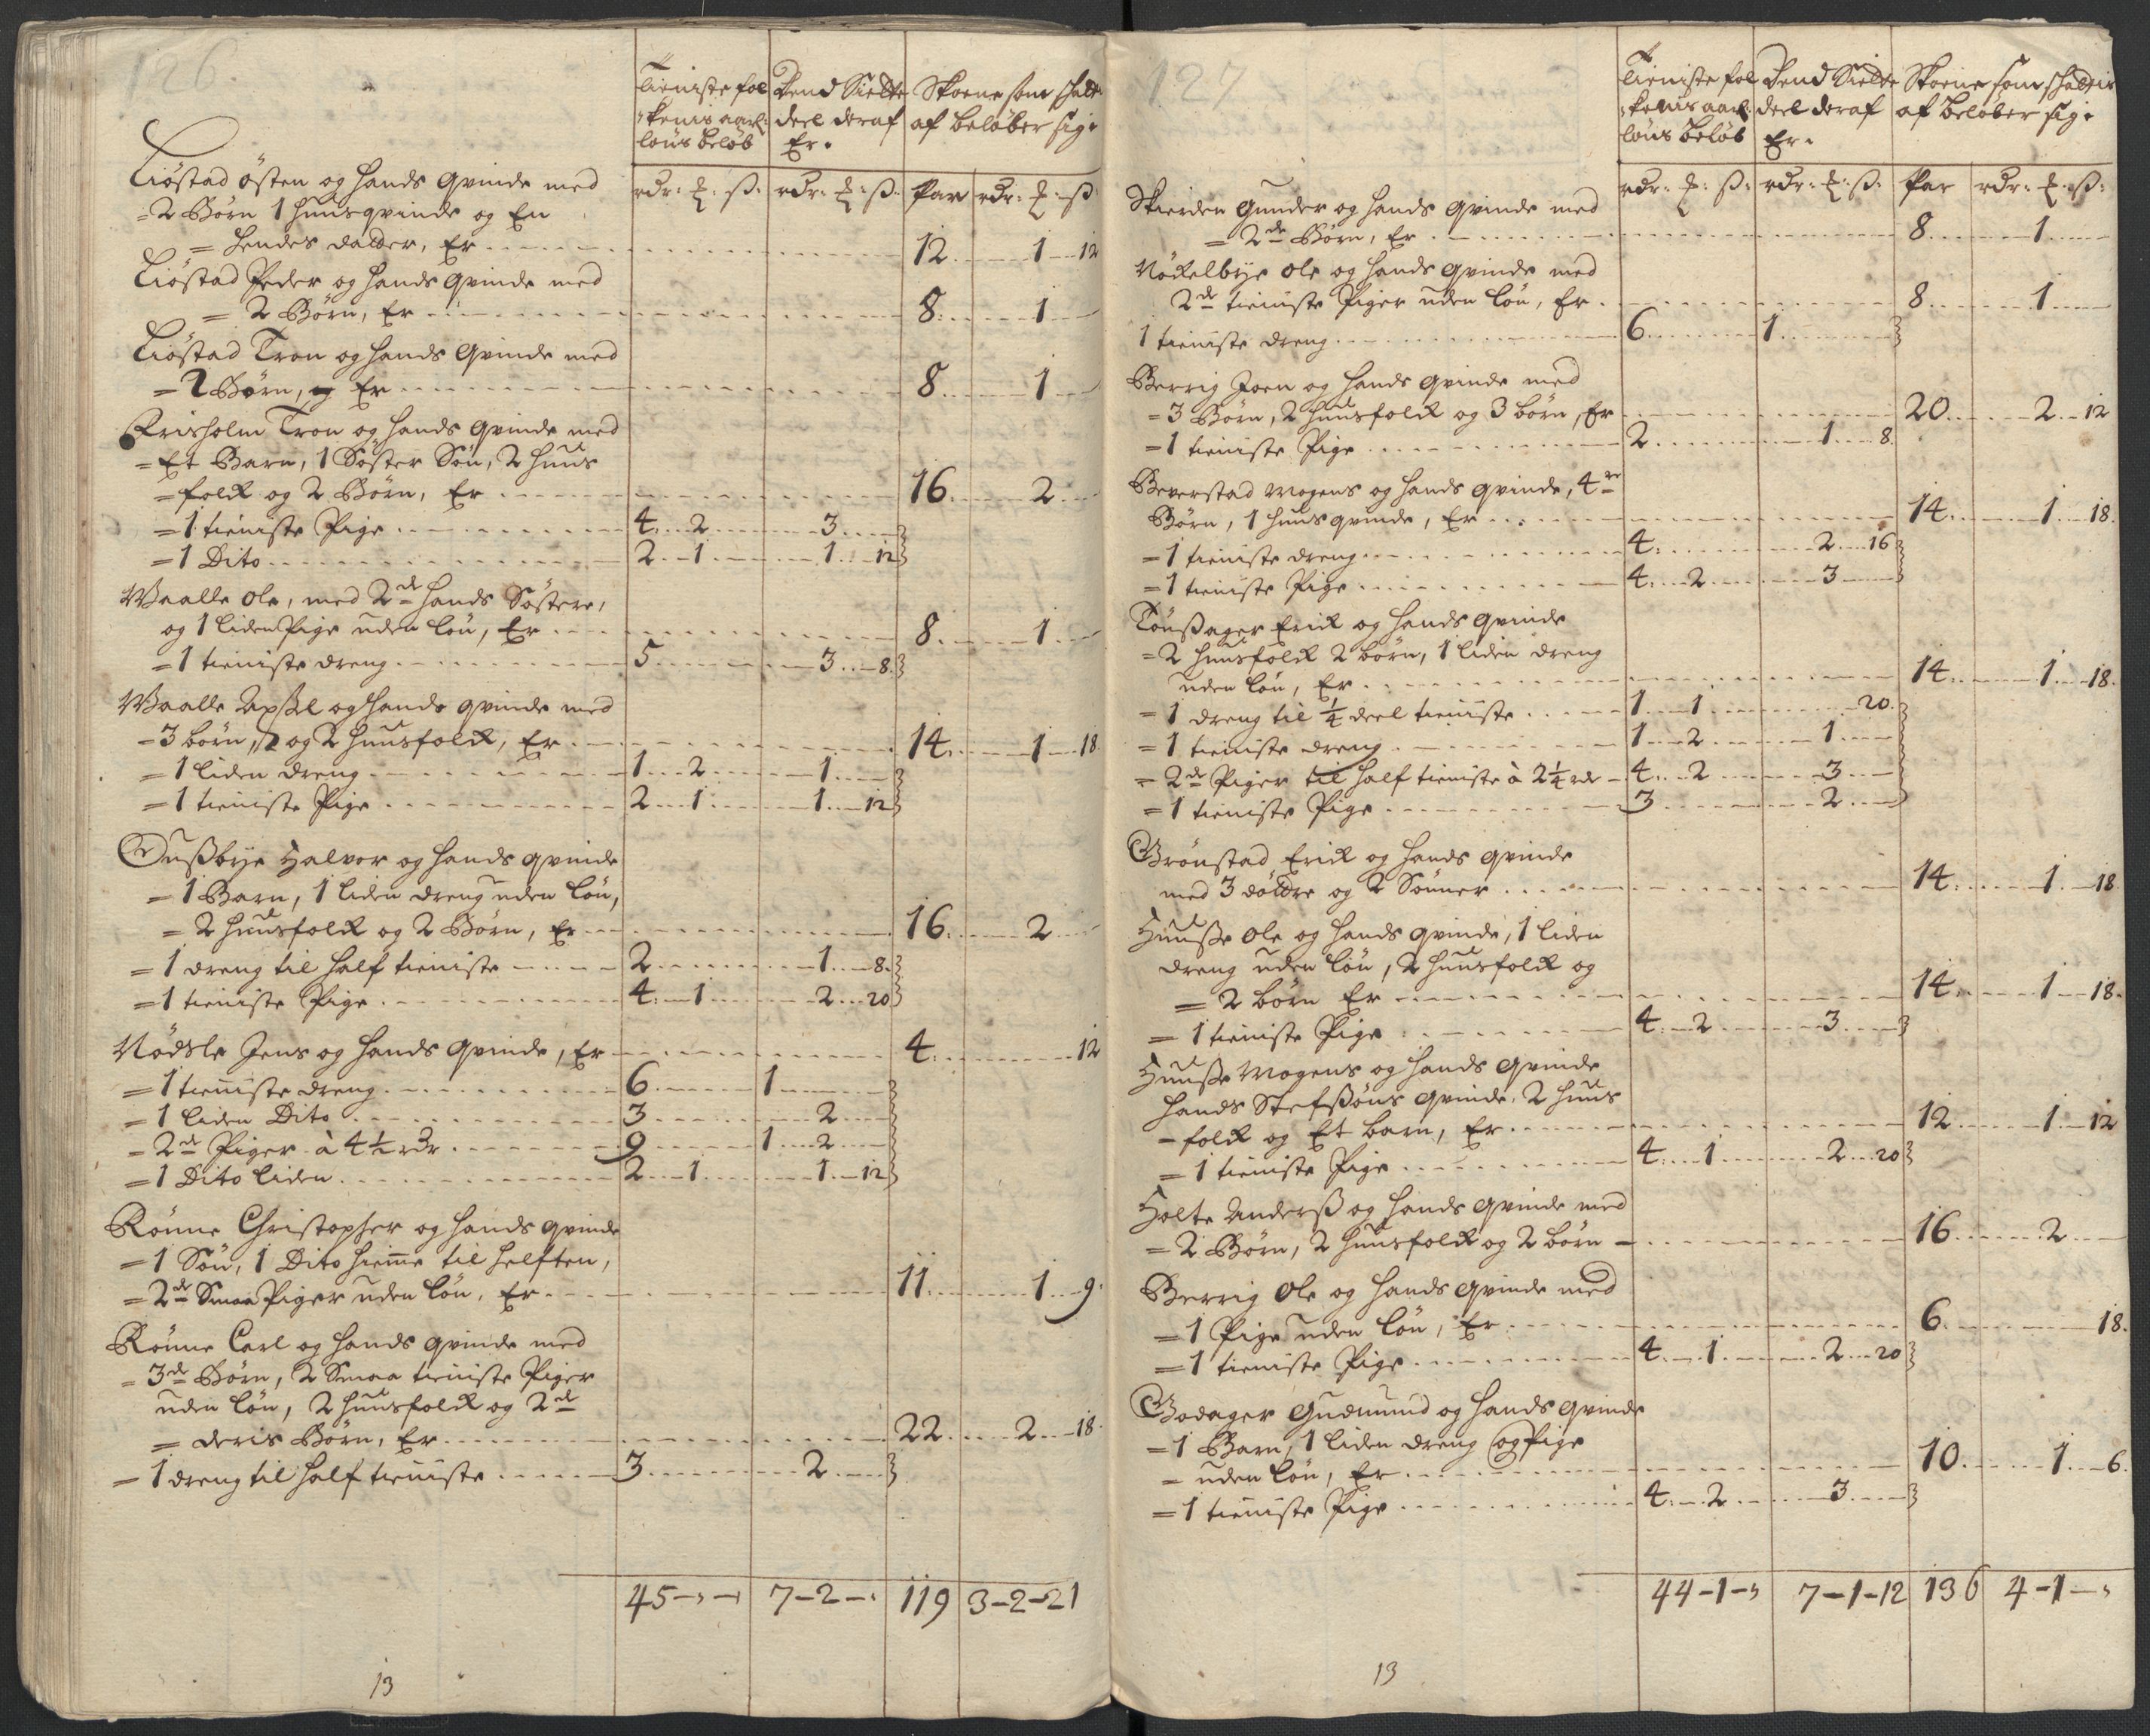 126.
Tieniste fol Bend Siette Skoene som schatt
kenis aarl: deel deraf af beløber sig:
løns beløb Er.
rdr: ƺ: ß: rdr: ƺ: ß: Par rdr: ƺ: ß:
Liøstad østen og hands qvinde med
=2 Børn 1 huusqvinde og En
= hendes datter, Er 12 1 12
Liøstad Peder og hands qvinde med
= 2 Børn, Er 8 1
Liøstad Tron og hands qvinde med
= 2 Børn, Er 8 1
Frisholm Tron og hands qvinde med
= Et Barn, 1 Søster Søn, 2 huus
= folck og 2 Børn, Er 16 2
= 1 tieniste Pige 4 2 3
= 1 Dito 2 1 1 12
Waalle ole, med 2de hands Søstere,
og 1 liden Pige uden løn, Er 8 1
= 1 tieniste dreng 5 3 8
Waalle Axsel og hands qvinde med
= 3 børn, og 2 huusfolck, Er 14 1 18
= 1 liden dreng 1 2 1
= 1 tieniste Pige 2 1 1 12
Dussbye Halvor og hands qvinde
= 1 Barn, 1 liden dreng uden løn,
= 2 huusfolck og 2 Børn, Er 16 2
= 1 dreng til half tieniste 2 1 8
= 1 tieniste Pige 4 1 2 20
Nødsle Jens og hands qvinde, Er 4 12
= 1 tieniste dreng 6 1
= 1 liden Dito 3 2
= 2de Piger à 4½ rdr 9 1 2
= 1 Dito liden 2 1 1 12
Rønne Christopher og hands qvinde
= 1 Søn, 1 Dito hieme til helften,
= 2de Smaa Piger uden løn, Er 11 1 9
Rønne Carl og hands qvinde med
= 3de Børn, 2 Smaa tieniste Piger
uden løn, 2 huusfolck og 2de
= deris Børn, Er 22 2 18
= 1 dreng til half tieniste 3 2
45-"-" 7-2-" 119 3-2-21
13
127
Tieniste fol Bend Siette Skoene som schattis
kenis aarl: deel deraf af beløber sig:
løns beløb Er.
rdr: ƺ: ß: rdr: ƺ: ß: Par rdr: ƺ: ß:
Skierden Gunder og hands qvinde med
= 2de Børn, Er 8 1
Nøckelbye ole og hands qvinde med
2de tieniste Piger uden løn, Er 8 1
1 tieniste dreng 6 1
Berrig Joen og hands qvinde med
= 3 Børn, 2 huusfolck og 3 børn, Er 20 2 12
= 1 tieniste Pige 2 1 8
Beverstad Mogens og hands qvinde, 4re
Børn, 1 huusqvinde, Er 14 1 18
= 1 tieniste dreng 4 2 16
= 1 tieniste Pige 4 2 3
Tønßager Erick og hands qvinde
= 2 huusfolck 2 børn, 1 liden dreng
uden løn, Er 14 1 18
= 1 dreng til ¼ deel tieniste 1 1 20
= 1 tieniste dreng 1 2 1
= 2de Piger til half tieniste à 2¼ rdr 4 2 3
= 1 tieniste Pige 3 2
Grønstad Erick og hands qvinde
med 3 døttre og 2 Sønner 14 1 18
Huusse ole og hands qvinde, 1 liden
dreng uden løn, 2 huusfolck og
= 2 børn Er 14 1 18
= 1 tieniste Pige 4 2 3
Huusse Mogens og hands qvinde
hands Stefßøns qvinde, 2 huus
= folck og Et barn, Er 12 1 12
= 1 tieniste Pige 4 1 2 20
Holte Anderß og hands qvinde med
= 2 Børn, 2 huusfolck og 2 børn 16 2
Berrig Ole og hands qvinde med
= 1 Pige uden løn, Er 6 18
= 1 tieniste Pige 4 1 2 20
Godager Gudmund og hands qvinde
= 1 Barn, 1 liden dreng og Pige
= uden løn, Er 10 1 6
= 1 tieniste Pige 4 2 3
44-1-" 7-1-12 136 4-1-"
13